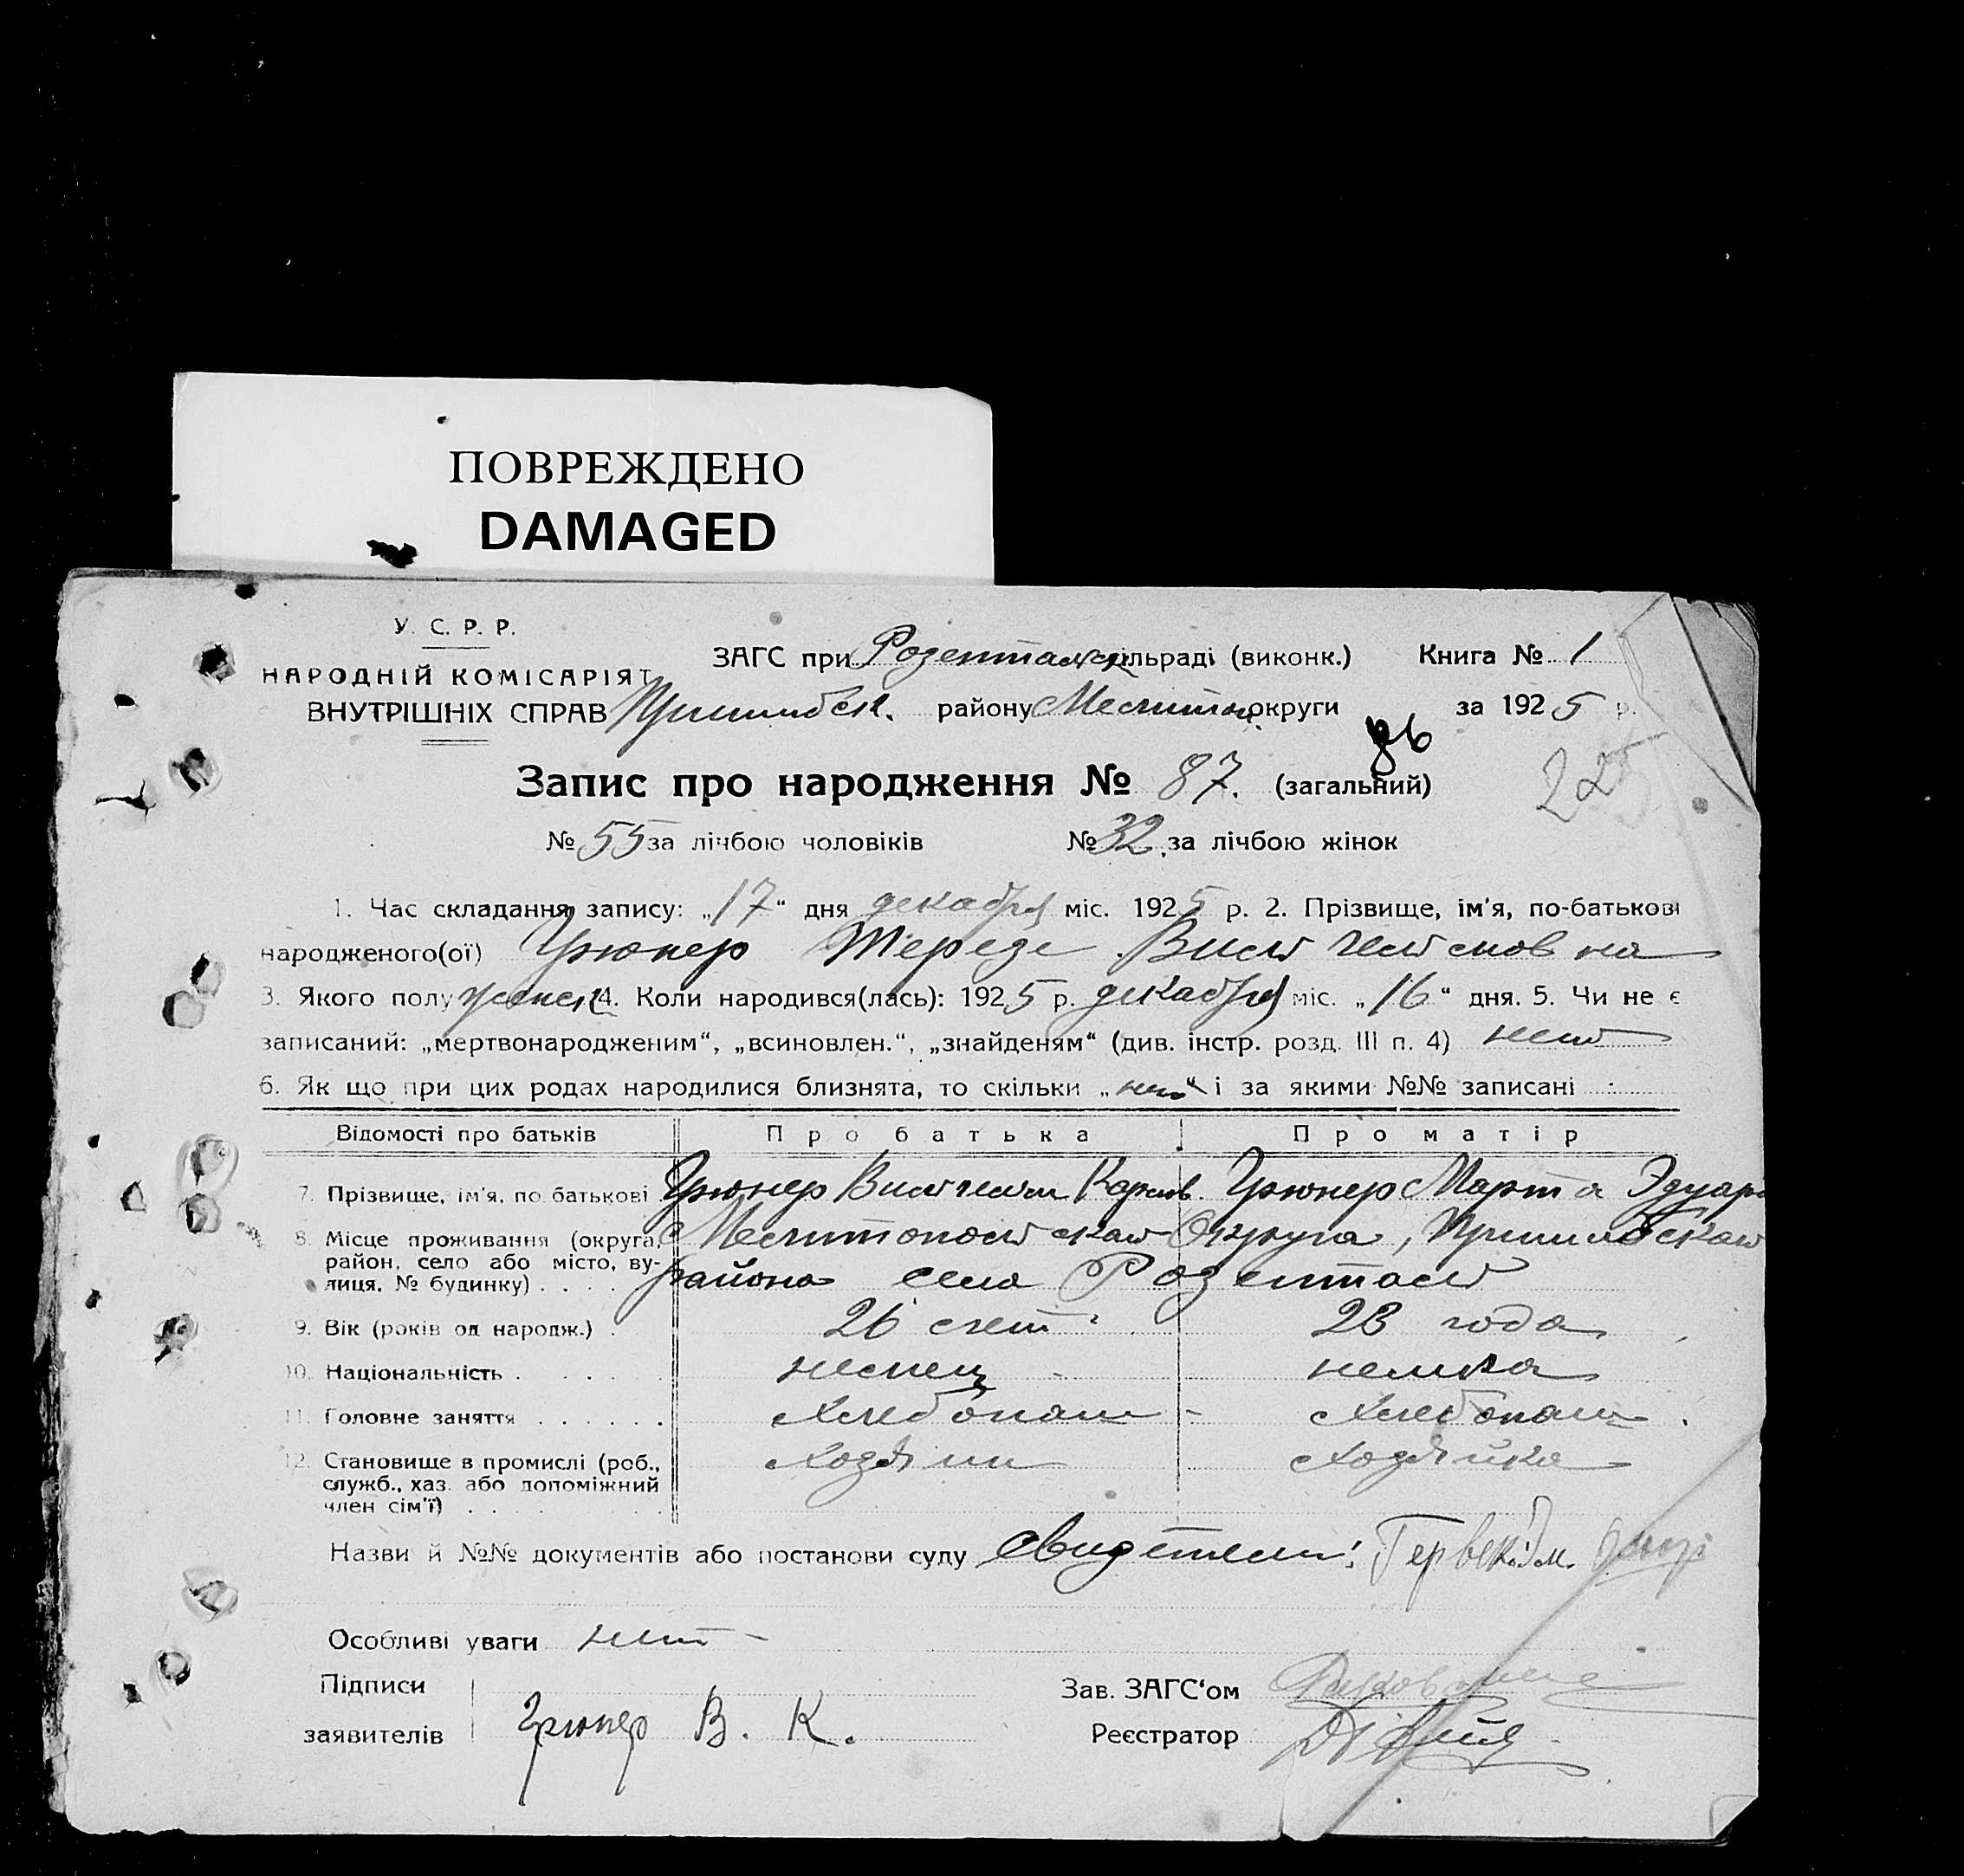 ПОВРЕЖДЕНО
DAMAGED
У. С. Р. Р.
НАРОДНІЙ КОМІСАРІЯТ
ВНУТРІШНІХ СПРАВ
ЗАГС при Розентальск сільраді (виконк.) Книга № 1
Пришибск. району Мелитоп. округи за 1925 р.
86
Запис про народження № 87. (загальний)
225
№ 55 за лічбою чоловіків № 32 за лічбою жінок
1. Час складання запису: „17“ дня декабря міс. 1925 р. 2. Прізвище, ім'я, по-батькові
народженого(ої) Грюнер Терезе Вильгельмовна
3. Якого полу женск 4. Коли народився(лась): 1925 р. декабря міс. „16“ дня. 5. Чи не є
записаний: „мертвонародженим“, „всиновлен.“, „знайденям“ (див. інстр. розд. III п. 4) нет
6. Як що при цих родах народилися близнята, то скільки „нет“ і за якими №№ записані
Відомості про батьків Про батька Про матір
7. Прізвище, ім'я, по батькові Грюнер Вильгельм Карлов. Грюнер Марта Эдуард
8. Місце проживання (округа, Мелитопольская Округа, Пришибская
район, село або місто, ву-
лиця, № будинку) . . . . района села Розенталь
9. Вік (років од народж.) . 26 лет 23 года
10. Національність . . . . . немец немка
11. Головне заняття . . . . . . Хлебопаш - Хлебопаш.
12. Становище в промислі (роб., Хозяин Хозяйка
служб., хаз. або допоміжний
член сім'ї) . . . .
Назви й №№ документів або постанови суду Свидетели:
Особливі уваги нет -
Підписи
заявителів Грюнер В. К.
Зав. ЗАГС‘ом
Реєстратор